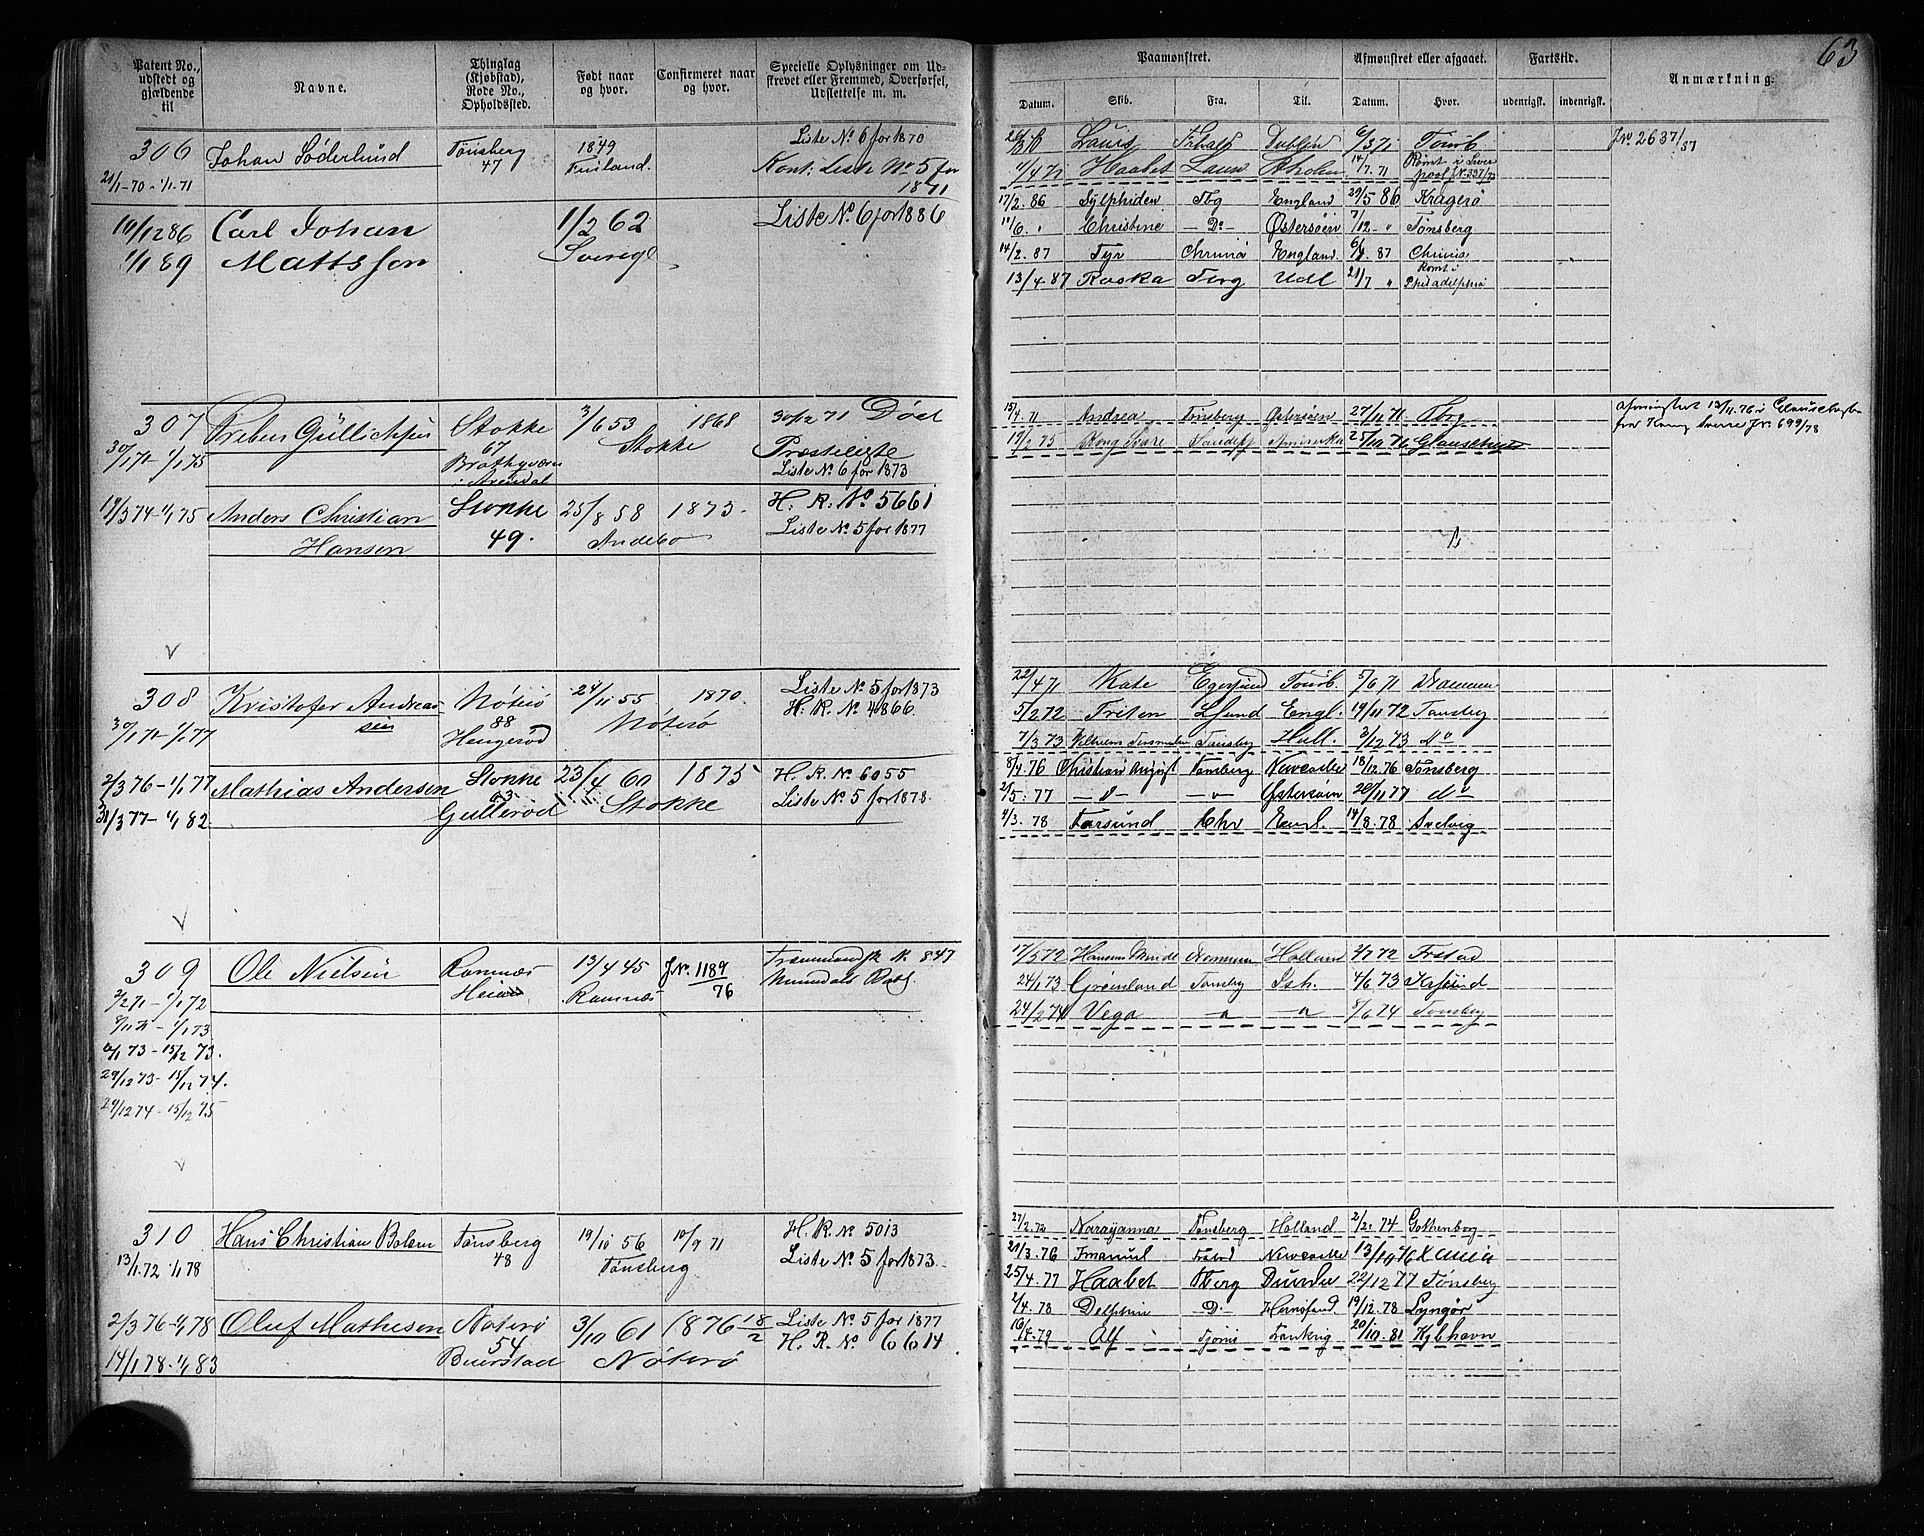 63
Patent No., udstedt og gjældende til
Navne.
Thinglag (Kjøbstad), Rode No., Opholdssted.
Født naar og hvor.
Confirmeret naar og hvor.
Specielle Oplysninger om Udskrevet eller Fremmed, Overførsel, Udslettelse m. m.
Paamønstret.
Afmønstret eller afgaaet.
Fartstid.
Anmærkning.
Datum.
Skib.
Fra.
Til.
Datum.
Hvor.
udenrigst.
indenrigst.
306
Johan Söderlund
Tönsberg
47
1849
Finland.
Liste No 6 for 1870
Kont: Liste No 5 for 1871
21/1-70-1/1-71
Dublin
6/3 71
Jn: 2637/87
11/4 71 Haabet
14/7. 71
Rømt i Liverpool
10/12 86
1/1 89
Carl Johan
Mattsson
1/2 62
Sverige
Liste No 6 for 1886
17/2. 86 Sylphiden Tbg England 29/5 86 Kragerø
11/6. " Christine - Do - Østersøen 7/12 - " Tønsberg
14/2. 87 Tyr Chrania England 87
13/4. 87 Raska Tbrg Udl 21/7 " Rømt i Philadelphia
307
30/1 71-1/1 75
Güllichsen
Stokke
67
3/6 53
Stokke
1868
30/12 71 Død
Præsteligte
Liste No 6 for 1873
15/4. 71 Andrea Tönsberg Østersøen 27/11 71. Tbrg
19/2 75 Kong Svære Amerika 25/11 76
Jr 699/78
19/3 74-1/1 75
Anders Christian
Hansen
Stokke
49.
25/8 58
Andebo
1873.
H. R: No 5661
Liste No 5 for 1877
308
30/1 71-1/1 77
Kristofer Andreassen
Nöterö
88
Hengerød
24/11 55
Nöterö
1870.
Liste No 5 for 1873
H. R. No 4866.
22/4 71 Kate Egersund Tönsb. 5/6 71 Drammen
5/2 72 Triton Engl. 19/11 72 Tønsberg
7/3 73 Tønsberg Hull. 3/12 73 Do
2/3 76-1/1 77
31/3 77-1/1 82.
Mathias Andersen
Stokke
63
Gullerød
23/4 60
Stokke
1875
H. R. No 6055
Liste No 5 for 1878.
8/4. 76 Christian August Tønsberg Newcastle 18/12. 76 Tønsberg
2/5. 77 Østersøen 20/11 77 Do
4/3. 78 Farsund Chr Engl. 14/8. 78 Svelvig
309
2/2 71-1/1 72
6/11 71-1/1 73
6/1 73-15/12 73.
29/12 73-15/12 74.
29/12 74-15/12 75
Ole Nielsen
Ramnæs
13/4 45
Ramnæs
JNr. 1189/76
No. 847
17/5 72 Drammen Holland 2/7 72 Frstad
24/1 73 Grønland Tønsberg Ish. 4/6 73
24/2 74 Vega 5/6 74 Tønsberg
310
13/1. 72 1/1 78
Hans Christian Bolsen
Tønsberg
48
19/10 56
Tønsberg
10/9 71
H. R. No 5013
Liste No 5 for 1873.
27/2. 72 Narayanna Tønsberg Holland 2/2. 74 Gothenborg
21/3. 76 Emanuel Newcastle
25/4. 77 Haabet Tberg Dundee 22/12 77 Tønsberg
2/3 76-1/1 78
14/1 78-1/1 83
Oluf Mathisen
Nøterö
54
Buerstad
3/10 61
Nøterö
1876 18/2
Liste No 5 for 1877
H. R. No 6614
2/4. 78 Delphin - Do - Hernøsand 19/12. 78 Lyngør
16/8. 79 Alf Tjømø Frankrig 20/10. 81 Kjbhavn